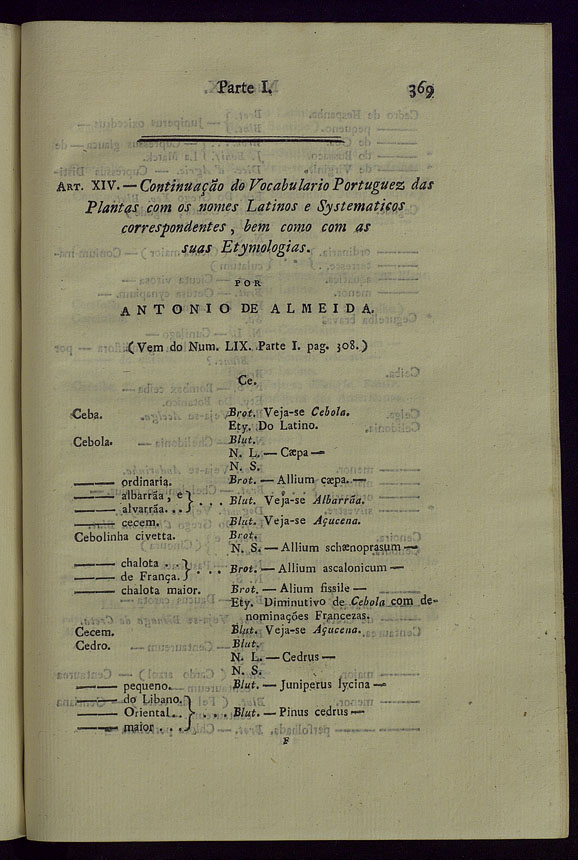 Parte I. 369
ART. XIV. — Continuação do Vocabulario Portuguez das
Plantas com os nomes Latinos e Systematicos
correspondentes, bem como com as
suas Etymologias.
POR
ANTONIO DE ALMEIDA.
(Vem do Num. LIX. Parte I. pag. 308.)
Ce.
Ceba. Brot. Veja-se Cebola.
Ety. Do Latino.
Cebola. Blut.
N. L. — Cæpa —
N. S.
—— ordinaria. Brot. — Allium cæpa. —
—— albarrãa, e } . . . Blut. Veja-se Albarrãa.
—— alvarrãa. . .
—— cecem. Blut. Veja-se Açucena.
Cebolinha civetta. Brot.
N. S. — Allium schænoprasum —
—— chalota . . } . . . Brot. — Allium ascalonicum —
—— de França.
—— chalota maior. Brot. — Alium fissile —
Ety. Diminutivo de Cebola com de-
nominações Francezas.
Cecem. Blut. Veja-se Açucena.
Cedro. Blut.
N. L. — Cedrus —
N. S.
—— pequeno. Blut. — Juniperus lycina —
—— do Libano.
—— Oriental. . } . . . . Blut. — Pinus cedrus —
—— maior . . .
F